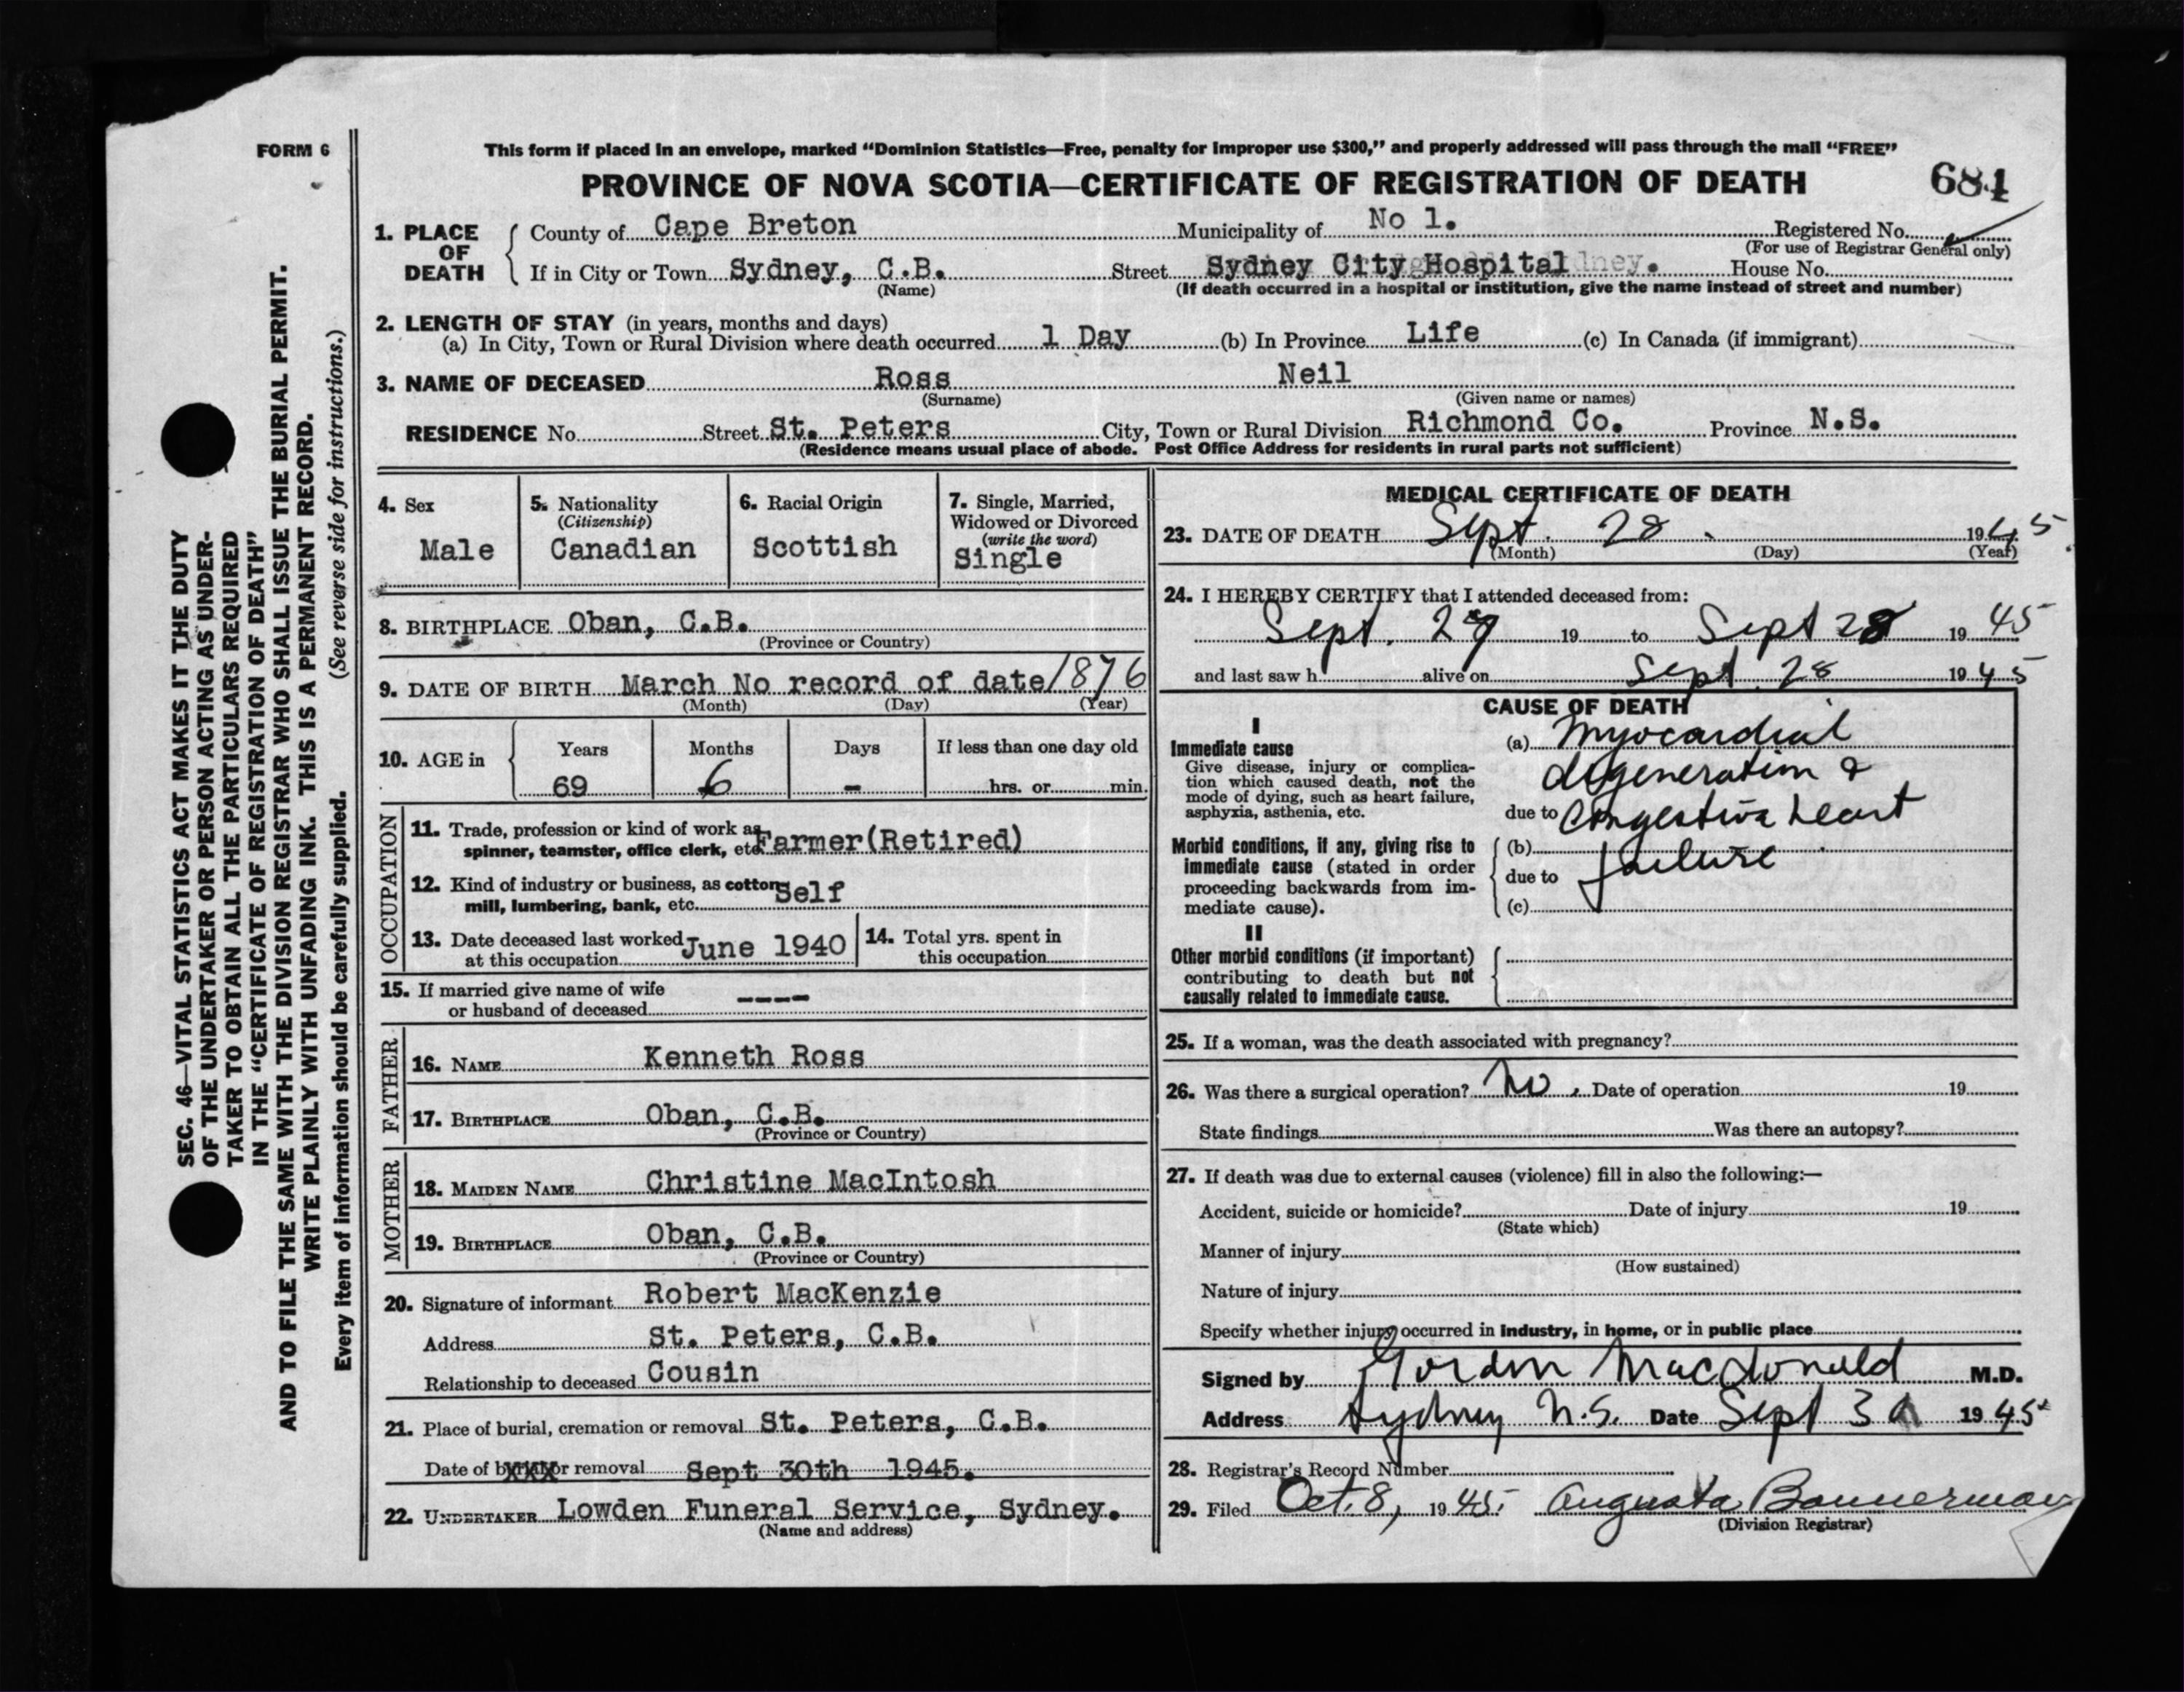 FORM 6
This form if placed in an envelope, marked “Dominion Statistics—Free, penalty for improper use $300,” and properly addressed will pass through the mail “FREE”
PROVINCE OF NOVA SCOTIA—CERTIFICATE OF REGISTRATION OF DEATH 684
1. PLACE OF DEATH
County of Cape Breton Municipality of No 1. Registered No.
(For use of Registrar General only)
If in City or Town Sydney, C.B. Street Sydney City Hospital House No.
(Name) (If death occurred in a hospital or institution, give the name instead of street and number)
2. LENGTH OF STAY (in years, months and days)
(a) In City, Town or Rural Division where death occurred 1 Day (b) In Province Life (c) In Canada (if immigrant)
3. NAME OF DECEASED Ross Neil
(Surname) (Given name or names)
RESIDENCE No. Street St. Peters City, Town or Rural Division Richmond Co. Province N.S.
(Residence means usual place of abode. Post Office Address for residents in rural parts not sufficient)
4. Sex
Male
5. Nationality
(Citizenship)
Canadian
6. Racial Origin
Scottish
7. Single, Married,
Widowed or Divorced
(write the word)
Single
8. BIRTHPLACE Oban, C.B.
(Province or Country)
9. DATE OF BIRTH March No record of date 1876
(Month) (Day) (Year)
10. AGE in
Years Months Days If less than one day old
69 6 - hrs. or min.
OCCUPATION
11. Trade, profession or kind of work as
spinner, teamster, office clerk, etc. Farmer(Retired)
12. Kind of industry or business, as cotton
mill, lumbering, bank, etc. Self
13. Date deceased last worked
at this occupation June 1940
14. Total yrs. spent in
this occupation
15. If married give name of wife
or husband of deceased ----
FATHER
16. NAME Kenneth Ross
17. BIRTHPLACE Oban, C.B.
(Province or Country)
MOTHER
18. MAIDEN NAME Christine MacIntosh
19. BIRTHPLACE Oban, C.B.
(Province or Country)
20. Signature of informant Robert MacKenzie
Address St. Peters, C.B.
Relationship to deceased Cousin
21. Place of burial, cremation or removal St. Peters, C.B.
Date of burial or removal Sept 30th 1945.
22. UNDERTAKER Lowden Funeral Service, Sydney.
(Name and address)
MEDICAL CERTIFICATE OF DEATH
23. DATE OF DEATH Sept. 28 1945
(Month) (Day) (Year)
24. I HEREBY CERTIFY that I attended deceased from:
Sept. 27 19 to Sept 28 19 45
and last saw h alive on Sept. 28 1945
CAUSE OF DEATH
I
Immediate cause
Give disease, injury or complica-
tion which caused death, not the
mode of dying, such as heart failure,
asphyxia, asthenia, etc.
(a) Myocardial
degeneration &
due to Congestive heart
Morbid conditions, if any, giving rise to
immediate cause (stated in order
proceeding backwards from im-
mediate cause).
(b) failure
due to
(c)
II
Other morbid conditions (if important)
contributing to death but not
causally related to immediate cause.
25. If a woman, was the death associated with pregnancy?
26. Was there a surgical operation? No. Date of operation 19
State findings Was there an autopsy?
27. If death was due to external causes (violence) fill in also the following:—
Accident, suicide or homicide? Date of injury 19
(State which)
Manner of injury
(How sustained)
Nature of injury
Specify whether injury occurred in industry, in home, or in public place
Signed by Gordon MacDonald M.D.
Address Sydney N.S. Date Sept 30 1945
28. Registrar's Record Number
29. Filed Oct. 8, 1945. Augusta Bannerman
(Division Registrar)
SEC. 46—VITAL STATISTICS ACT MAKES IT THE DUTY
OF THE UNDERTAKER OR PERSON ACTING AS UNDER-
TAKER TO OBTAIN ALL THE PARTICULARS REQUIRED
IN THE “CERTIFICATE OF REGISTRATION OF DEATH”
AND TO FILE THE SAME WITH THE DIVISION REGISTRAR WHO SHALL ISSUE THE BURIAL PERMIT.
WRITE PLAINLY WITH UNFADING INK. THIS IS A PERMANENT RECORD.
Every item of information should be carefully supplied. (See reverse side for instructions.)